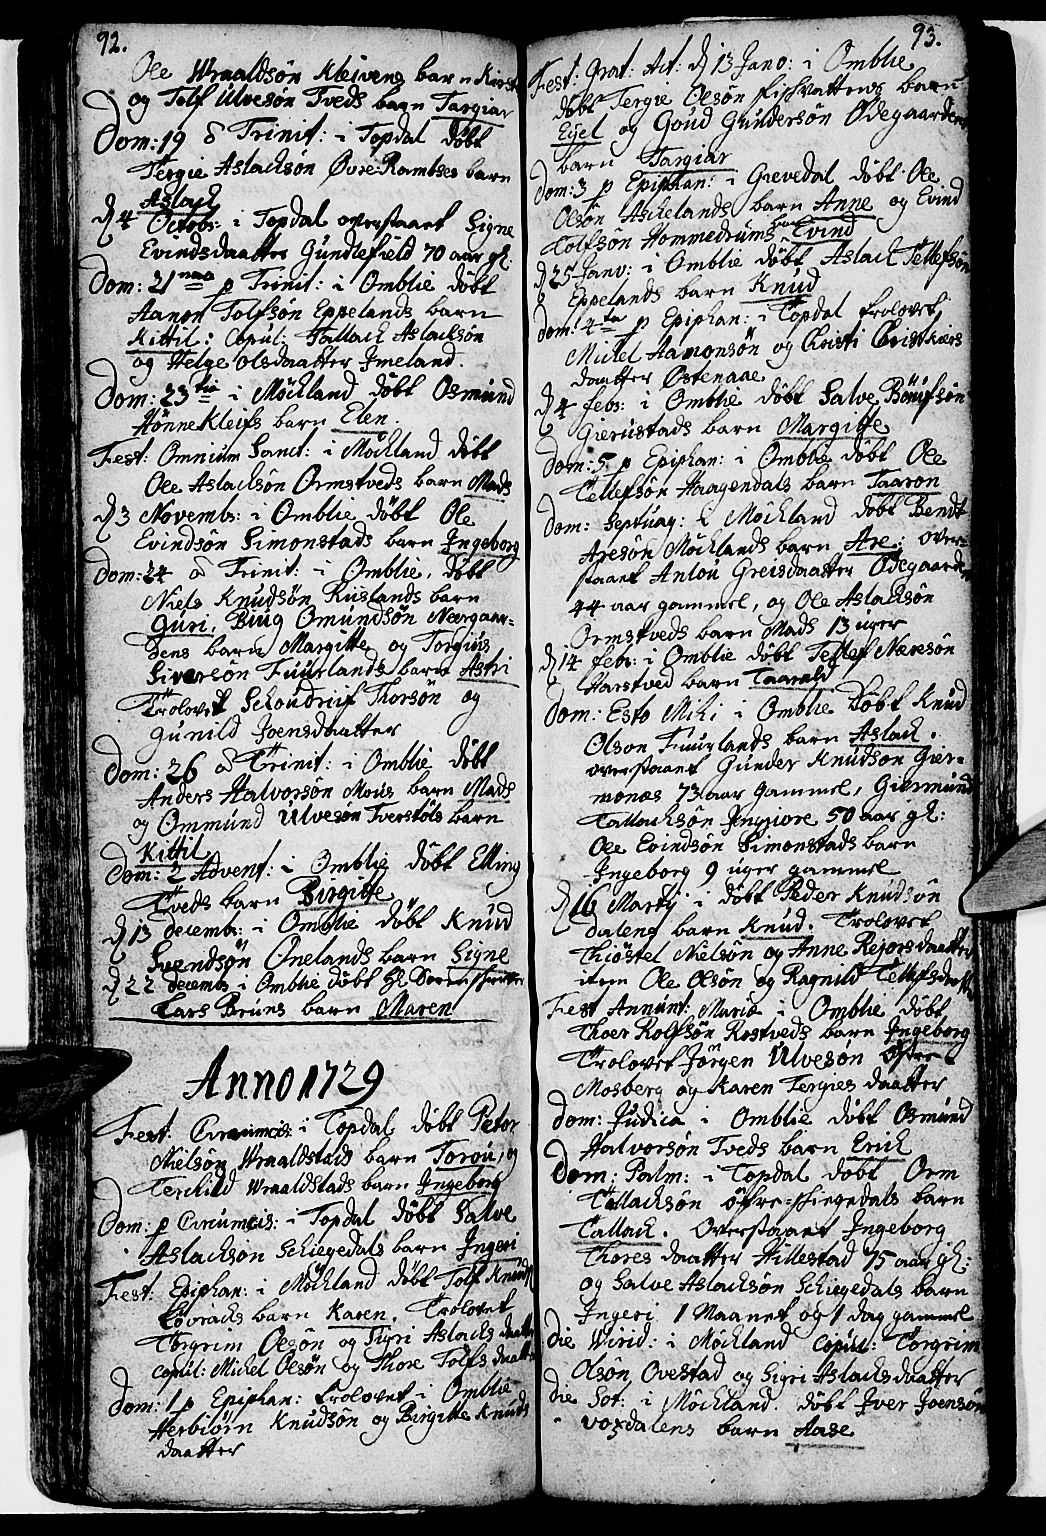 92.
Ole Wraaldsön Kleivens barn Kirst
og Tolf Ulvesön Tveds barn Targiar
Dom: 19 à Trinit: i Topdal döbt
Tergie Aslachsön Øvre Rambses barn
Aslach
d 4 Octobr: i Topdal overstaaet Signe
Evindsdaatter Gundlefield 70 aar gl:
Dom: 21 p Trinit: i Omblie döbt
Aanon Tolfsön Eppelands barn
Kittil: Copul: Tallach Aslachsön
og Helge Olsdaatter Jmeland.
Dom: 23 i Möckland döbt Osmund
Hönnekleifs barn Elen.
Fest: Omnium Sanct: i Möckland döbt
Ole Aslachsön Ormstveds barn Mads
d 3 Novembr: i Omblie döbt Ole
Evindsön Simonstads barn Jngeborg
Dom: 24 à Trinit: i Omblie, döbt
Niels Knudsön Ruslands barn
Guri, Omundsön Neergaar-
dens barn Margitte og Torgius
Siversön Fuurlands barn Astri
Trolovet Thorsön og
Gunild Joensdaatter
Dom: 26 à Trinit: i Omblie döbt
Anders Halvorsön barn Mads
og Ommund Ulvesön Tverstöls barn
Kittil
Dom: 2 Advent: i Omblie döbt Elling
Tveds barn Birgitte
d 13 decemb: i Omblie döbt Knud
Svendsön Önelands barn Signe
d 22 decemb i Omblie döbt
Lars Bruns barn Maren
Anno 1729
Fest: Circumcis: i Topdal döbt Peter
Nielsön Wraaldstads barn Torou, og
Terchild Wraaldstads barn Jngeborg
Dom: p Circumcis: i Topdal döbt Salve
Aslachsön Schiegedals barn Jngeri
Fest: Epiphan: i Möckland döbt Tolf Knuds
barn Karen. Trolovet
Torgrim Olsön og Sigri Aslachs daatter
copul: Michel Olsön og Thore Tolfs daatter
Dom: 1 p Epiphan: trolovet i Omblie
Herbiörn Knudsön og Birgitte Knuds
daatter
93.
Fest: Grat: Act: d 13 Jan: i Omblie
döbt Tergie Olsön Fischvattens barn
Egel og Goud Gundersön Ödegaardens
barn Targiar
Dom: 3 p Epiphan: i Grevedal döbt Ole
Olsön Aschelands barn Anne og Evind
Tolfsön Hommedrums barn Evind
d 25 Janv: i Omblie döbt Aslach Tellefsön
Eppelands barn Knud
Dom: 4ta p Epiphan: i Topdal trolovet
Michel Aamonsön og Christi Christkiers
daatter Östenaae
d 4 febr: i Omblie döbt Salve
Gierustads barn Margitte
Dom: 5 p Epiphan: i Omblie döbt Ole
Tellefsön Haagendals barn Taaron
Dom: Septuag: i Möckland döbt Bendt
Aresön Möcklands barn Are: over-
staaet Anlou Greisdaatter Ödegaarden
44 aar gammel, og Ole Aslachsön
Ormstveds barn Mads 13 uger
d 14 febr: i Omblie döbt Tellef Næresön
Harstved barn Taarald
Dom: Esto Mihi i Omblie döbt Knud
Olson Fuurlands barn Aslach.
overstaaet Gunder Knudson Gier-
monæs 73 aar gammel, Giermund
Tallachsön Jngiore 50 aar gl:
Ole Evindsön Simonstads barn
Jngeborg 9 uger gammel
d 16 Martij i döbt Peder Knudsön
dalens barn Knud. Trolovet
Thiöstel Nielsön og Anne Rejersdaatter
item Ole Olsön og Ragnild Tellefsdaatter
Fest Annunt: Mariæ i Omblie döbt
Thoer Rolfsön Rostveds barn Jngeborg
Trolovet Jörgen Ulvesön Östre
Mosberg og Karen Tergies daatter
Dom: Judica i Omblie döbt Osmund
Halvorsön Tveds barn Erich
Dom: Palm: i Topdal döbt Orm
Tallachsön öfre-schiegedals barn
Tallach. Overstaaet Jngeborg
Thores daatter Hillestad 75 aar gl:
og Salve Aslachsön Schiegedals barn
Jngeri 1 Maanet og 1 dag gammel
die Virid: i Möckland copul: Torgrim
Olsön Ovestad og Sigri Aslachsdaatter
die Sot: i Möckland. döbt Jver Joensön
vogdalens barn Aase